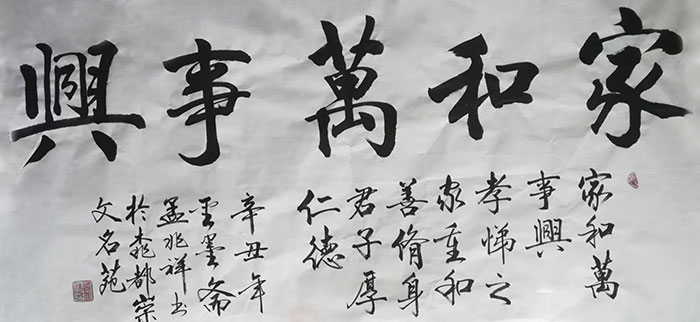 家和萬事興
家和萬
事興
孝悌之
家重和
善脩身
君子厚
仁德
辛丑年
墨斋
孟兆祥书
於都崇
文名苑